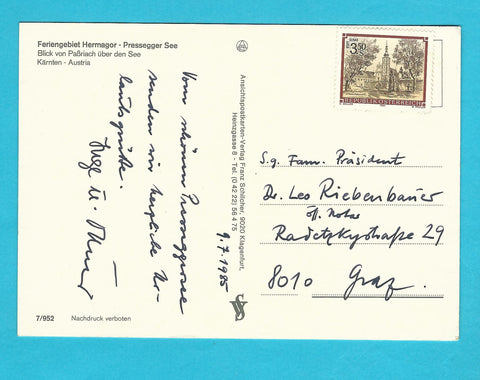 Feriengebiet Hermagor · Pressegger See
Blick von Paßriach über den See
Kärnten - Austria
Vom schönen Pressegger See
senden wir herzliche Ur-
laubsgrüße.
u.
9.7.1985
Ansichtspostkarten-Verlag Franz Schilcher, 9020 Klagenfurt,
Heinzgasse 8 - Tel. (0 42 22) 56 4 75
3.50
REPUBLIK ÖSTERREICH
S.g. Fam. Präsident
Dr. Leo Riebenbauer
öff. Notar
Radetzkystraße 29
8010 Graz.
7/952 Nachdruck verboten